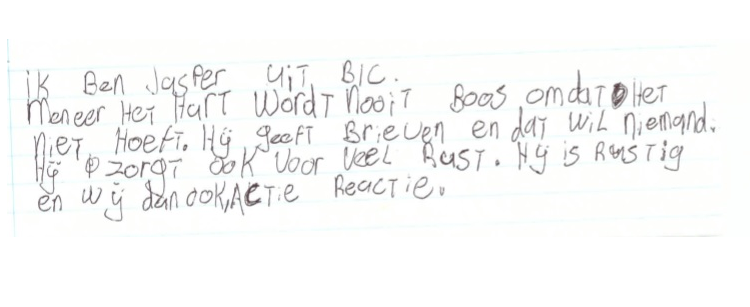 ik Ben Jasper uit B1C.
Meneer Het Hart Wordt Nooit Boos omdat Het
niet Hoeft. Hij geeft Brieven en dat wil niemand.
Hij zorgt ook voor veel Rust. Hij is Rustig
en wij dan ook, Actie Reactie.